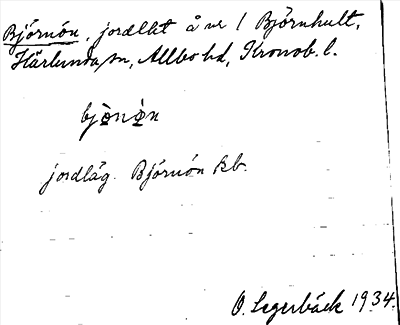 Björnön, jordlht å nr 1 Björnhult,
Härlunda sn, Allbo hd, Kronob. l.
bjö̀nö̀n
jordläg. Björnön kb.
O. Legerbäck 1934.